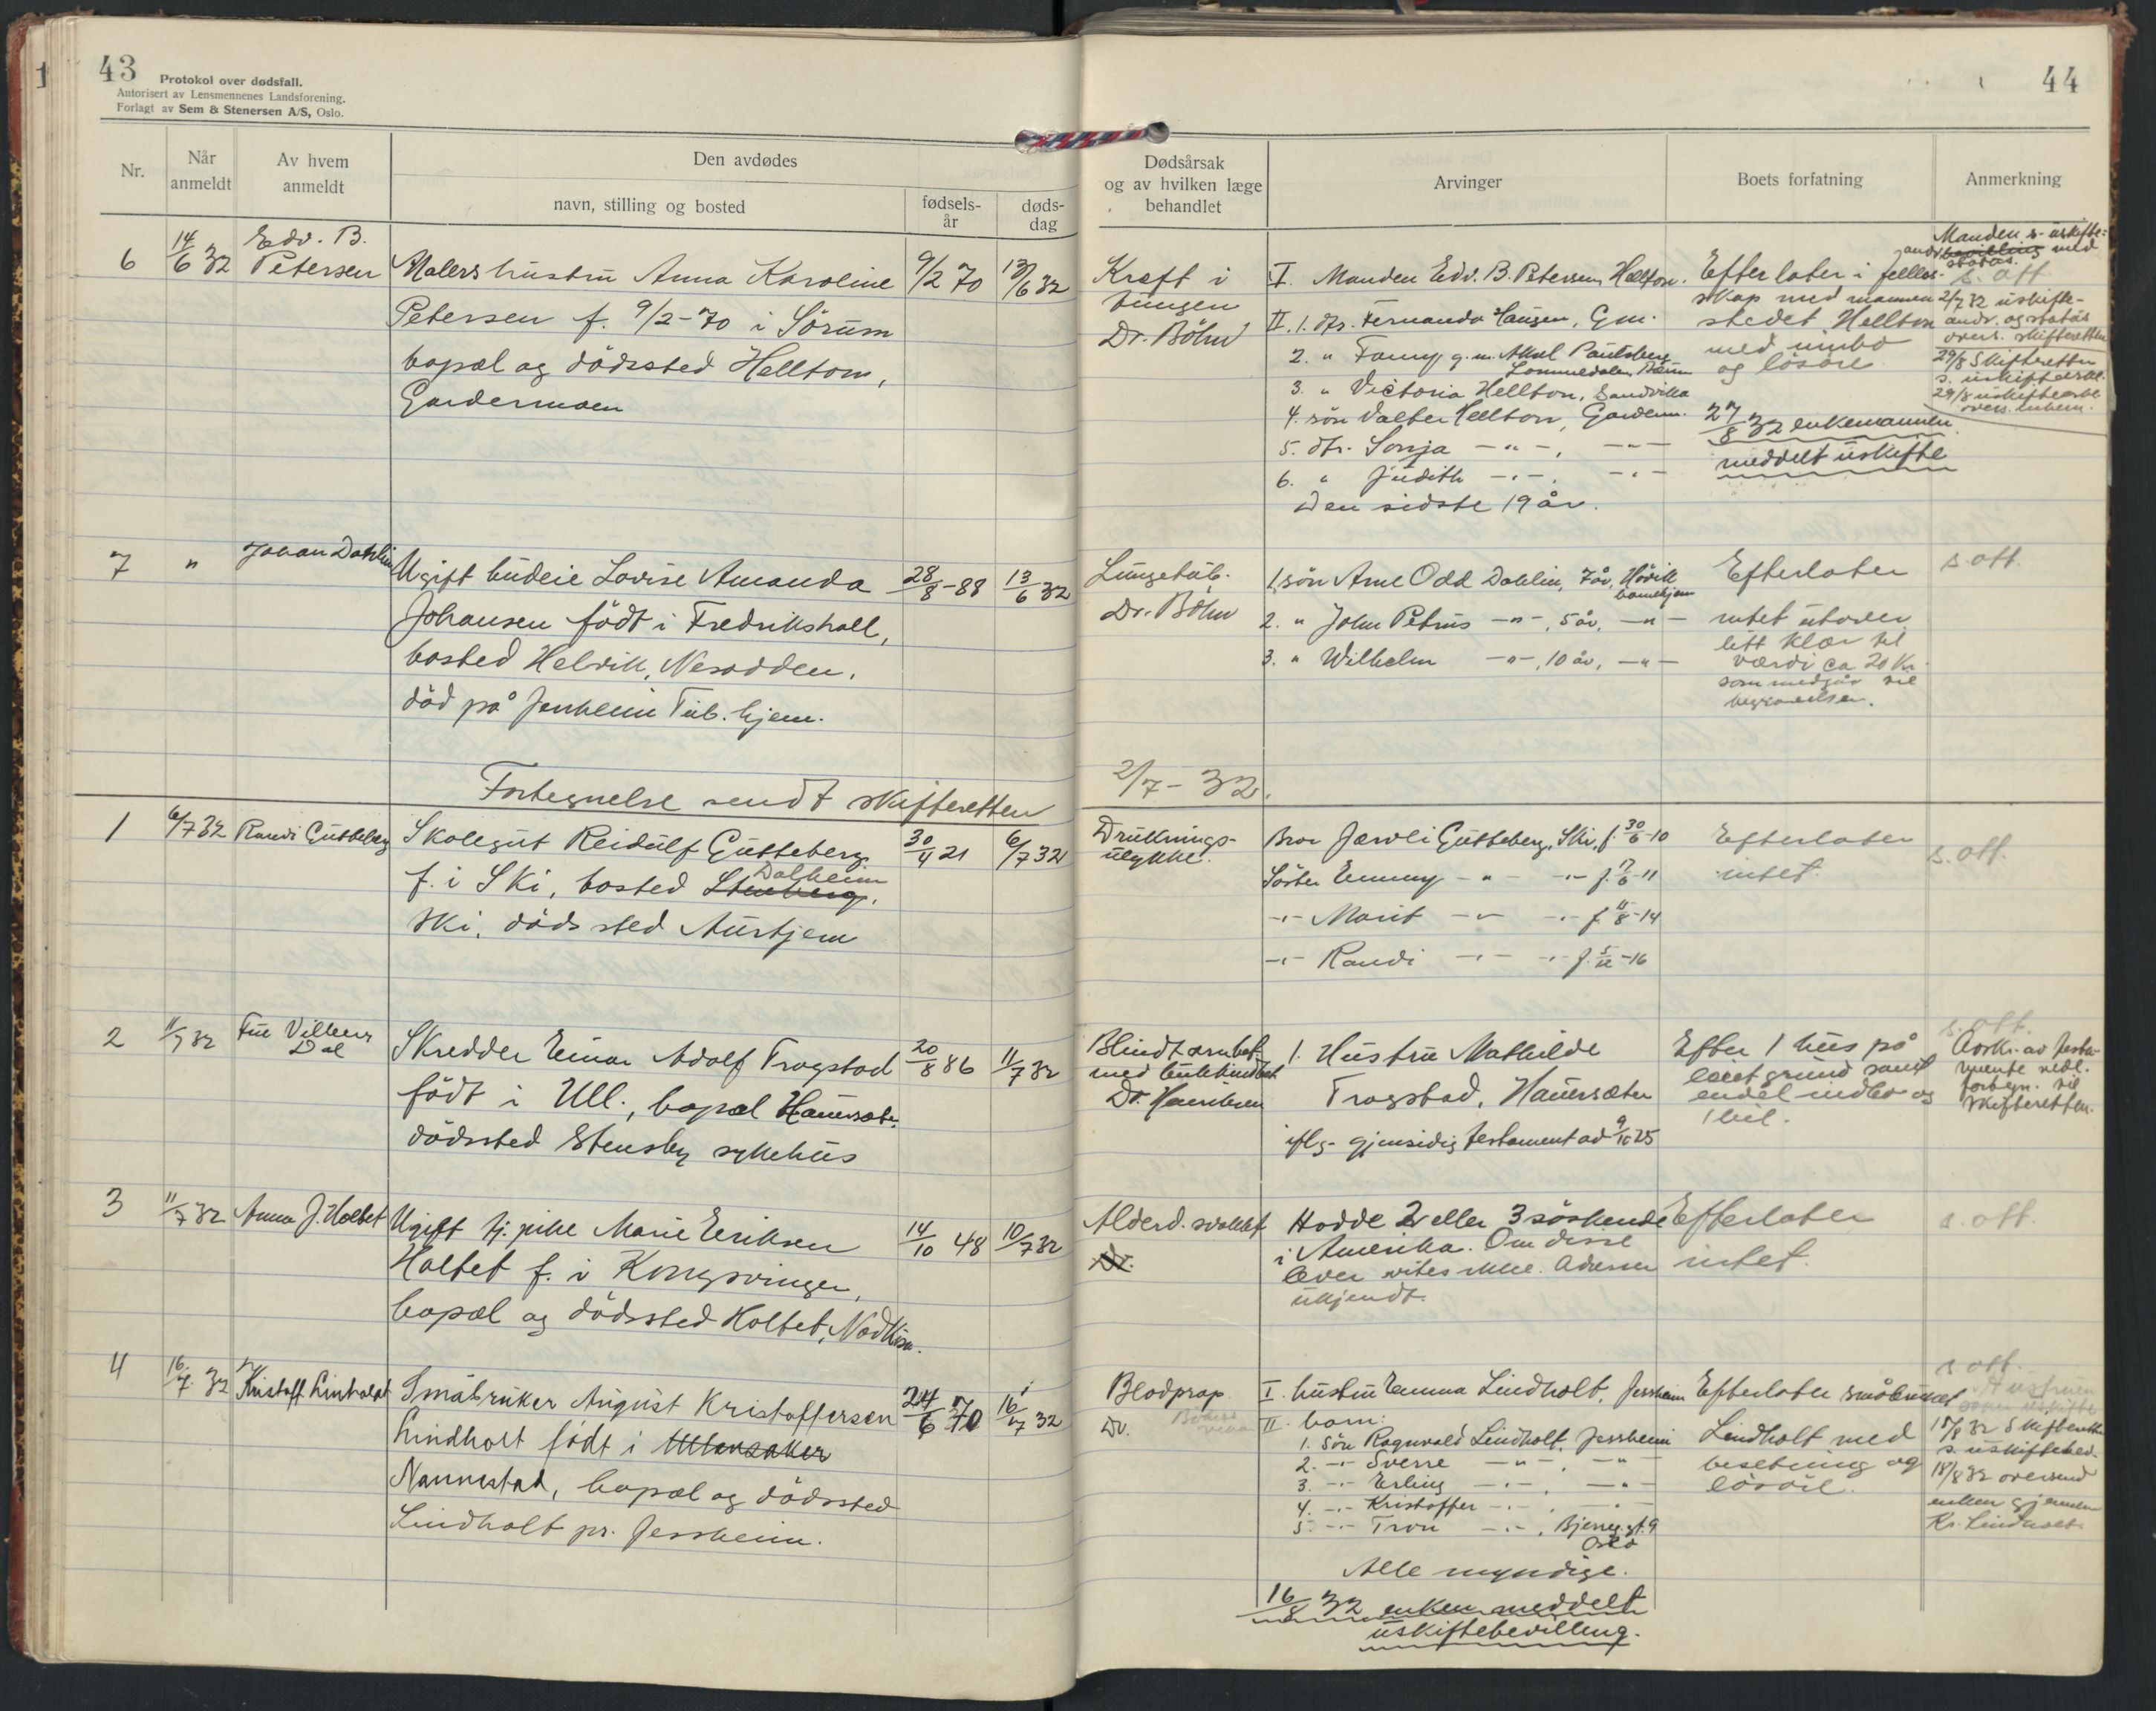 43
Protokol over dødsfall.
Autorisert av Lensmennenes Landsforening.
Forlagt av Sem & Stenersen A/S, Oslo.
Nr.
Når anmeldt
Av hvem anmeldt
Den avdødes
navn, stilling og bosted
fødsels-år
døds-dag
6
14/6 32
Edv. B.
Petersen
Malers hustru Anna Karoline
9/2 70
13/6 32
Petersen f. 9/2-70 i Sörum
bopæl og dödssted Helltom,
Gardermoen
7
"
Johan Dahlin
Ugift budeie Lovise Amanda
28/8-88
13/6 32
Johansen födt i Fredrikshall,
bosted Helvik, Nesodden,
död på Jessheim Tub. hjem.
Fortegnelse sendt skifteretten
1
6/7 32
Randi Gutteberg
Skolegut Reidulf Gutteberg
30/4 21
6/7 32
Dalheim
f. i Ski, bosted Stenberg,
Ski, dödssted Aurtjern
2
11/7 32
Fru Villum
Dal
Skredder Einar Adolf Trogstad
20/8 86
11/7 32
födt i Ull., bopæl Hauersæter
dödssted Stensby sykehus
3
11/7 32
Anna J. Holtet
Ugift tj. pike Marie Eriksen
14/10 48
10/7 32
Holtet f. i Kongsvinger,
bopæl og dödssted Holtet, Nordkisa.
4
16/7 32
Kristoff. Lindholt
Småbruker August Kristoffersen
24/6 70
16/7 32
Lindholt födt i Ullensaker
Nannestad, bopæl og dödssted
Lindholt pr. Jessheim.
44
Dødsårsak
og av hvilken læge
behandlet
Arvinger
Boets forfatning
Anmerkning
Manden s. uskifte-
andr. bevilling med
status.
s. off.
2/7 32 uskifte-
andr. og status
overs. skifteretten
29/8 Skifteretten
s. uskiftebev.
29/8 uskiftebev.
Kræft i
tungen
Dr. Böhn
I. Manden Edv. B. Petersen, Helltom.
II. 1. dtr. Fernanda Haugen, Gm.
2. " Fanny g. m. Aksel Paulsberg
Lommedalen, Bærum
3. " Victoria Hellton, Sandvika
4. sön Valter Hellton, Garderm.
5. dtr. Sonja - " -, - " -
6. " Judith - " -, - " -
Den sidste 19 år.
Efterlater i felles-
skap med mannen
stedet Hellton
med innbo
og lösöre
27/8 32 enkemannen
meddelt uskifte
Lungetub.
Dr. Böhn
1. sön Arne Odd Dahlin, 7 år, Hövik
barnehjem
2. " John Petrus - " -, 5 år, - " -
3. " Wilhelm - " -, 10 år, - " -
Efterlater
intet utover
litt klær til
værdi ca 20 Kr.
som medgår til
begravelsen.
s. off.
2/7-32.
Druknings-
ulykke.
Bror Jarvli Gutteberg, Ski, f. 30/6-10
Söster Emmy - " - - " - f. 7/6-11
- " - Marit - " - - " - f. 11/8-14
- " - Randi - " - - " - f. 5/12-16
Efterlater
intet.
s. off.
Blindtarmbet.
med bukhindebet.
Dr. Henriksen
1. Hustru Mathilde
Trogstad, Hauersæter
iflg. gjensidig testament av 9/10 25
Efter 1 hus på
leiet grund samt
endel indbo og
1 bil.
s. off.
Avskr. av testa-
mente vedl.
fortegn. til
skifteretten.
Alderd. svakhet
Dr.
Hadde 2 eller 3 söskende
i Amerika. Om disse
lever vites ikke. Adresser
ukjendt.
Efterlater
intet.
s. off.
Blodprop
Dr.
I. hustru Emma Lindholt, Jessheim
II. barn:
1. Sön Ragnvald Lindholt, Jessheim
2. - " - Sverre - " -, - " -
3. - " - Erling - " -, - " -
4. - " - Kristoffer - " -, - " -
5. - " - Tron - " -, Bjerreg. gt. 9
Oslo
Alle myndige.
16/8 32 enken meddelt
uskiftebevilling.
Efterlater småbruket
Lindholt med
besetning og
lösöre.
s. off.
Hustruen
15/8 32 Skifteretten
s. uskiftebev.
18/8 32 oversend
enken gjennem
Kr. Lindholt